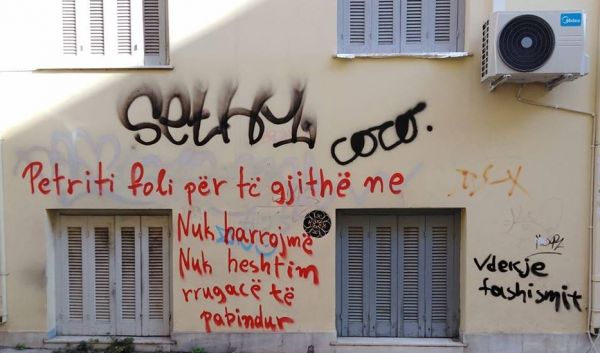 Midea
Sethy1.
coco.
Petriti foli për të gjithë ne
Nuk harrojmë
Nuk heshtim
rrugacë të
papindur
Vdekje
fashismit